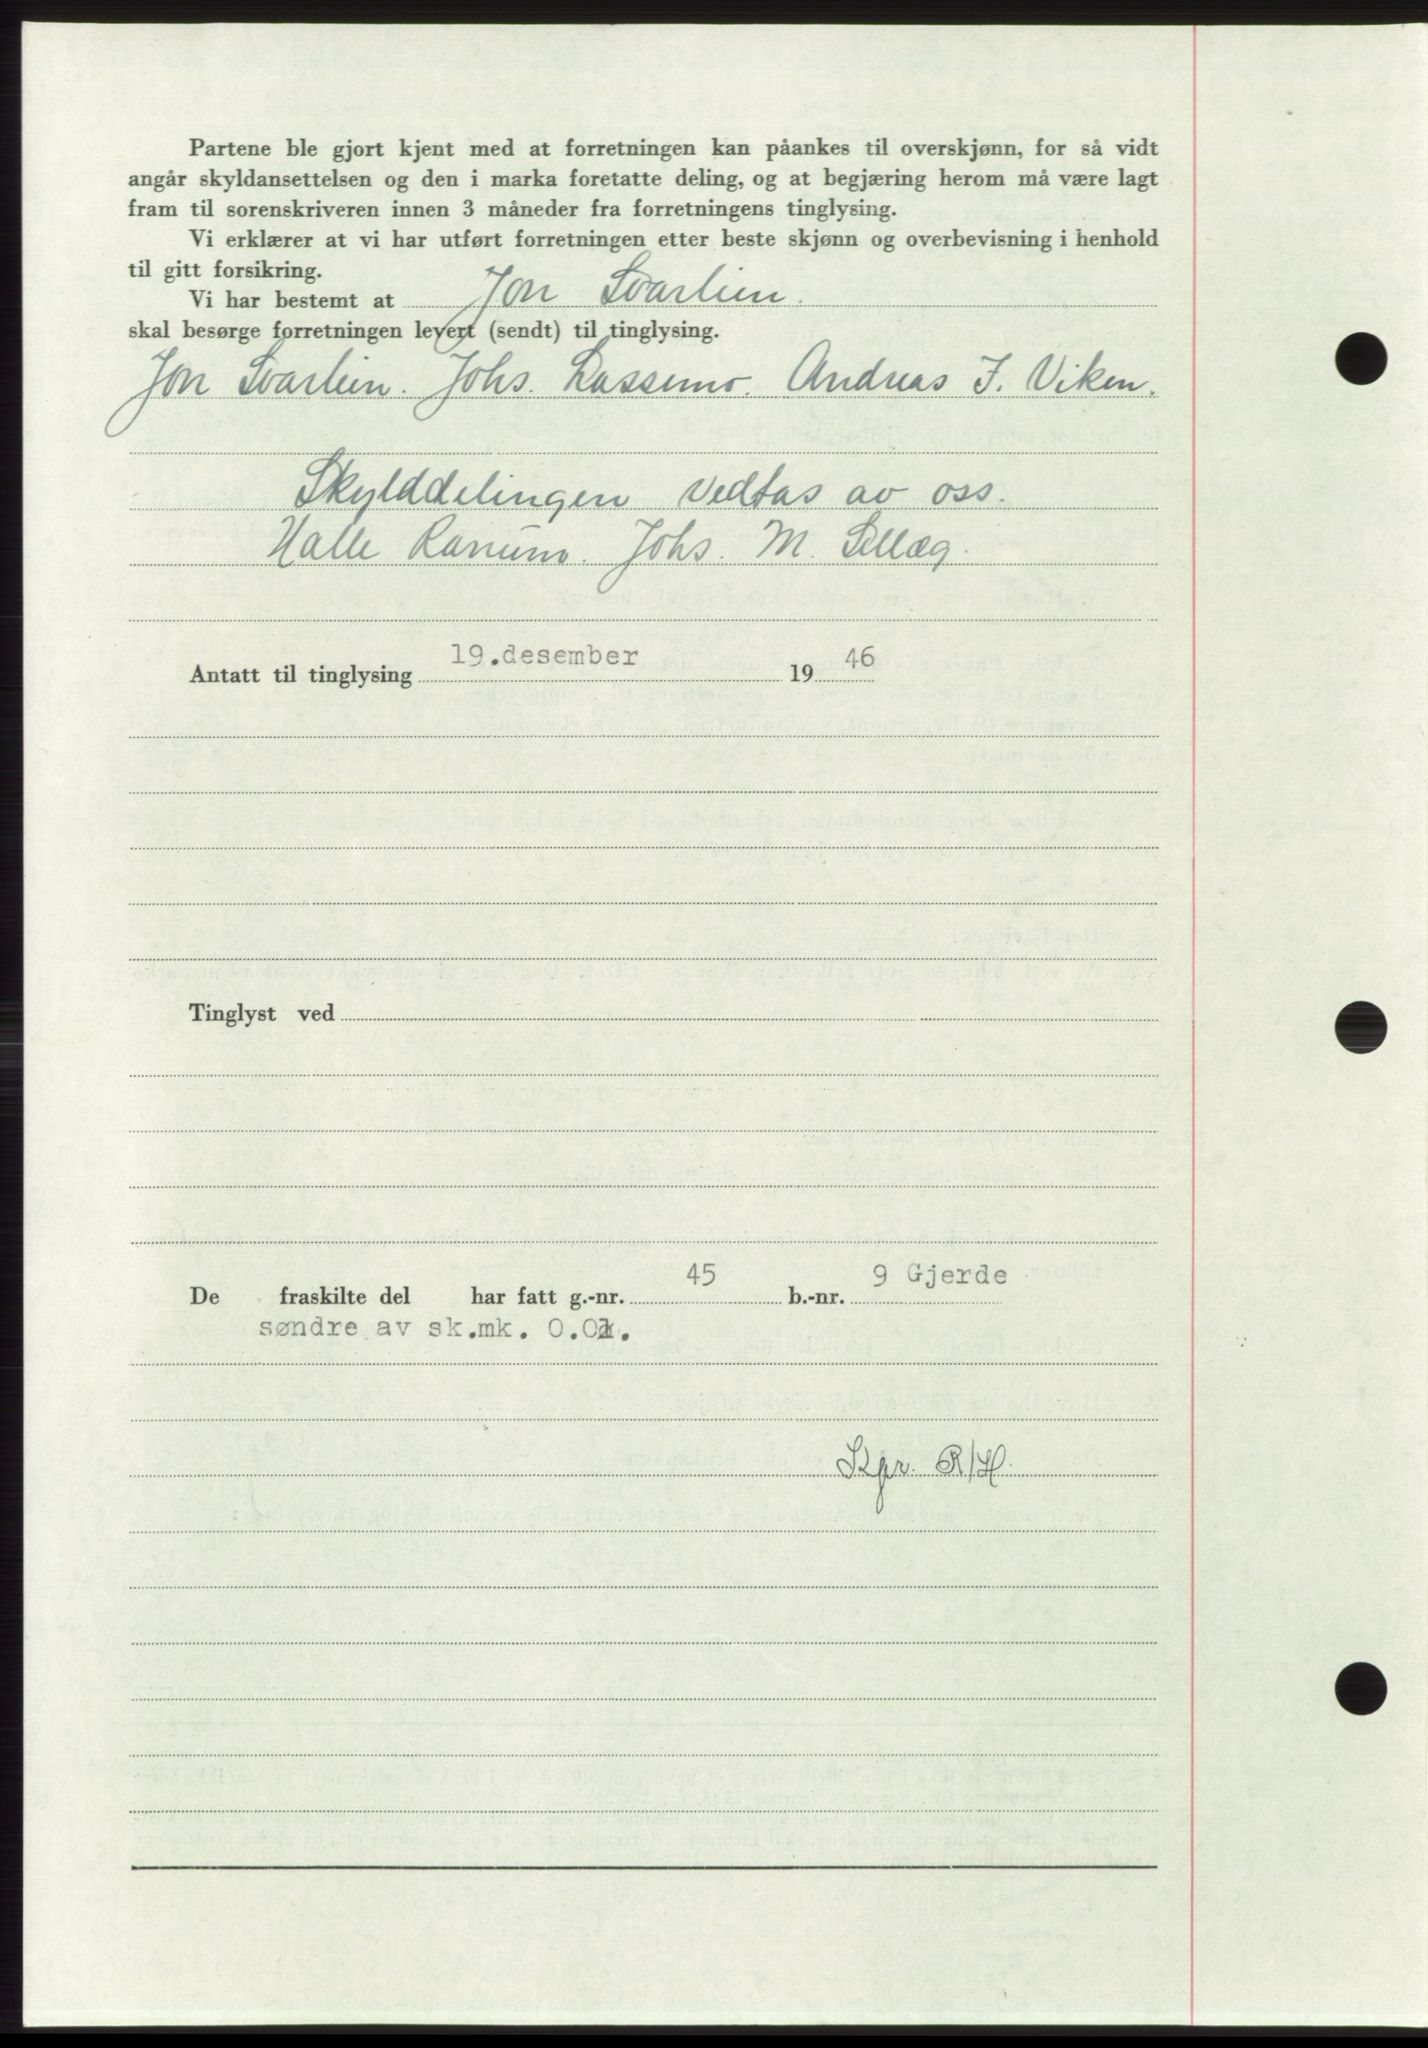 Partene ble gjort kjent med at forretningen kan påankes til overskjønn, for så vidt
angår skyldansettelsen og den i marka foretatte deling, og at begjæring herom må være lagt
fram til sorenskriveren innen 3 måneder fra forretningens tinglysing.
Vi erklærer at vi har utført forretningen etter beste skjønn og overbevisning i henhold
til gitt forsikring.
Vi har bestemt at Jon Svarlien.
skal besørge forretningen levert (sendt) til tinglysing.
Jon Svarlien. Johs. Lassemo. Andreas J. Viken.
Skylddelingen vedtas av oss.
Halle Ranum. Johs. M. Sellæg.
Antatt til tinglysing 19.desember 19 46
Tinglyst ved
De fraskilte del har fatt g.-nr. 45 b.-nr. 9 Gjerde
søndre av sk.mk.
Kpr. R/H.